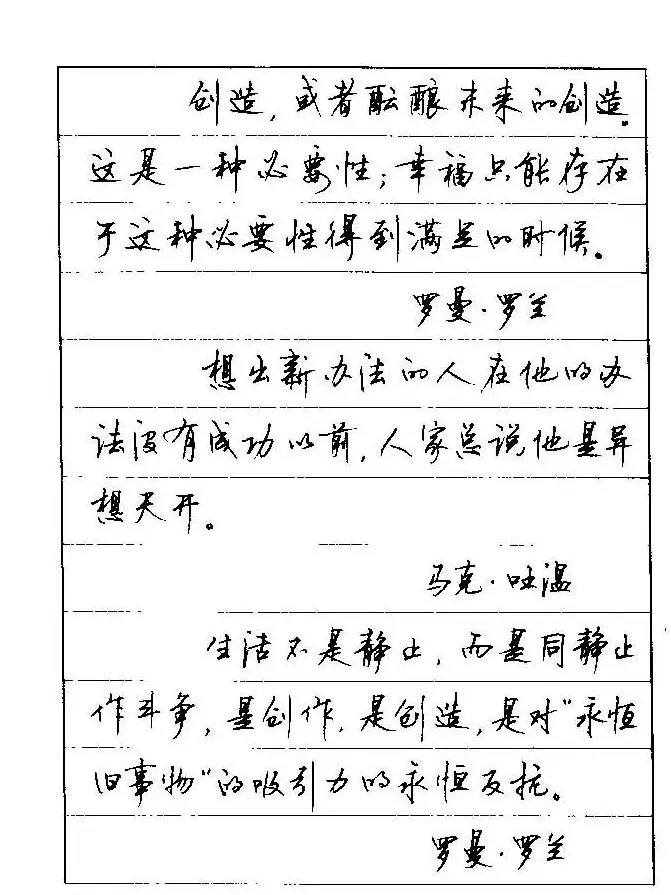 创造，或者酝酿未来的创造。
这是一种必要性；幸福只能存在
于这种必要性得到满足的时候。
罗曼·罗兰
想出新办法的人在他的办
法没有成功以前，人家总说他是异
想天开。
马克·吐温
生活不是静止，而是同静止
作斗争，是创作，是创造，是对“永恒
旧事物”的吸引力的永恒反抗。
罗曼·罗兰